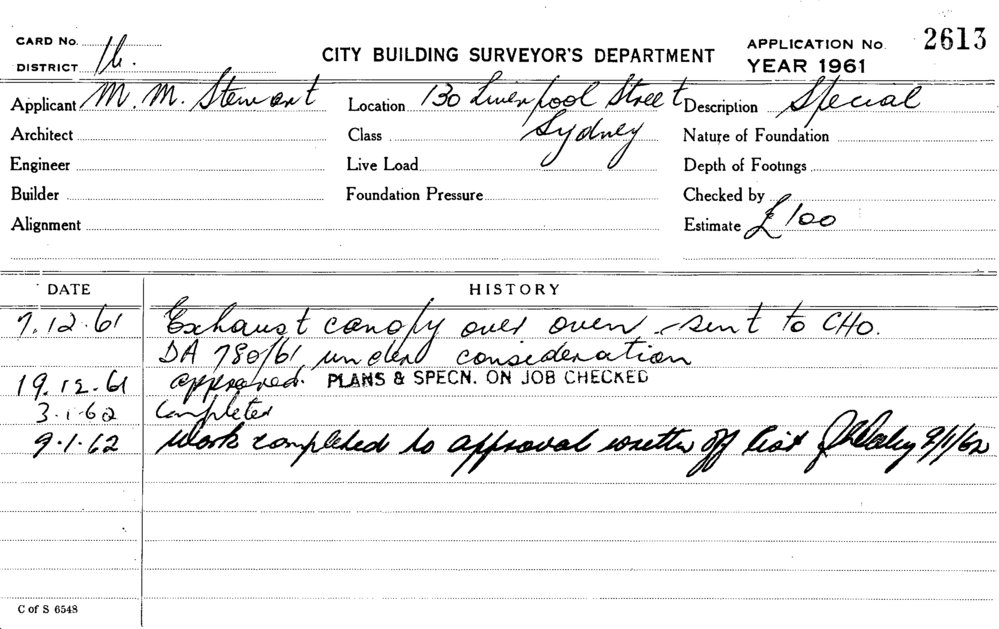 CARD No.
CITY BUILDING SURVEYOR'S DEPARTMENT
APPLICATION No. 2613
DISTRICT 1b.
YEAR 1961
Applicant M. M. Stewart Location 130 Liverpool Street Description Special
Architect Class Sydney Nature of Foundation
Engineer Live Load Depth of Footings
Builder Foundation Pressure Checked by
Alignment Estimate £100
DATE HISTORY
7.12.61 Exhaust canopy over oven - sent to CHO.
DA 780/61 under consideration
19.12.61 approved. PLANS & SPECN. ON JOB CHECKED
3.1.62 Completed
9.1.62 Work completed to approval written off list 9/1/62
C of S 6548